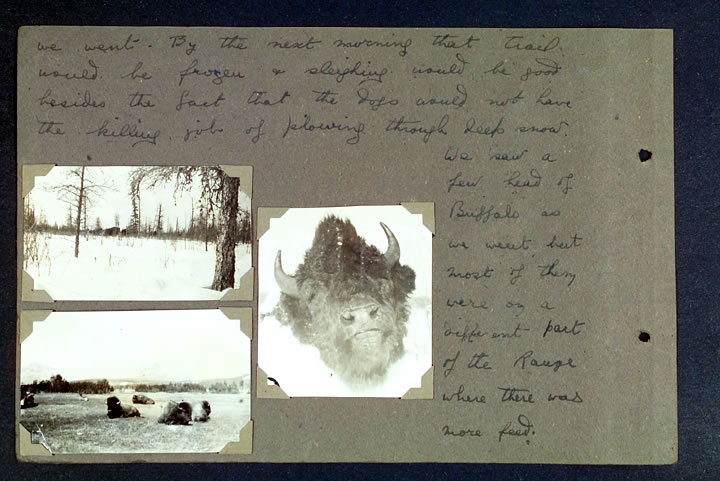 we went. By the next morning that trail
would be frozen & sleighing would be good
besides the fact that the dogs would not have
the killing job of plowing through deep snow.
We saw a
few head of
Buffalo as
we went but
most of them
were on a
different part
of the Range
where there was
more feed.